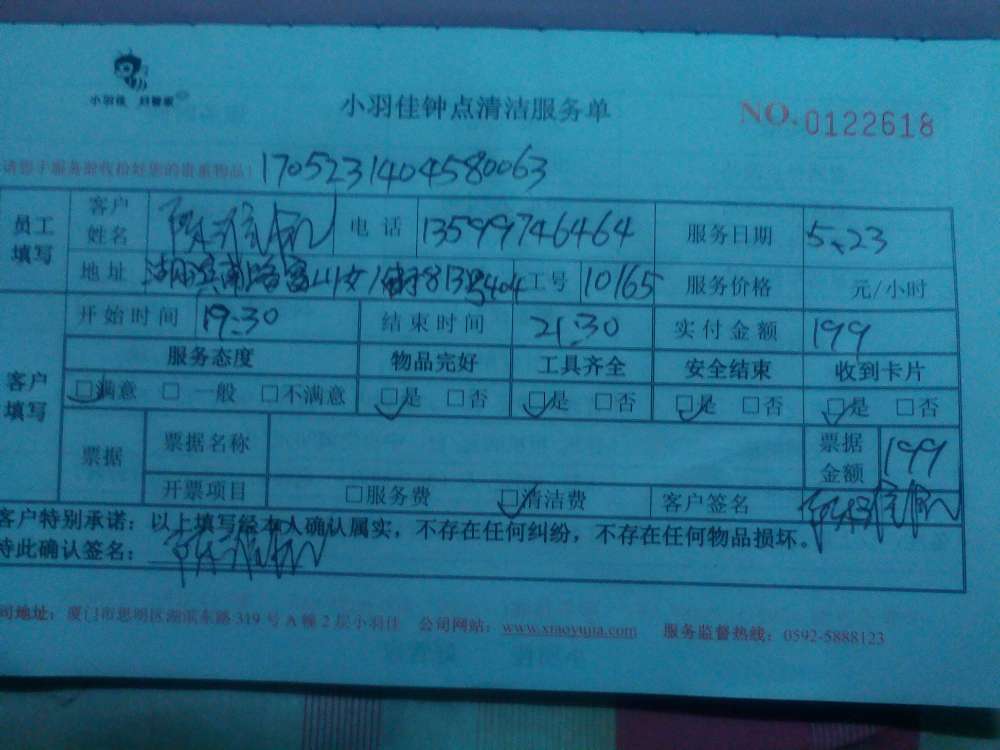 小羽佳 好管家
小羽佳钟点清洁服务单
NO.0122618
请您于服务验收检好您的贵重物品!
1705231404580063
员工填写
客户姓名
电话 13599746464 服务日期 5.23
地址 湖滨南路 工号 10165 服务价格 元/小时
客户填写
开始时间 19:30 结束时间 21:30 实付金额 199
服务态度 物品完好 工具齐全 安全结束 收到卡片
□满意 □一般 □不满意 □是 □否 □是 □否 □是 □否 □是 □否
票据 票据名称 票据金额 199
开票项目 □服务费 □清洁费 客户签名
客户特别承诺:以上填写经本人确认属实,不存在任何纠纷,不存在任何物品损坏。
特此确认签名:
司地址:厦门市思明区湖滨东路319号A幢2层小羽佳 公司网站:www.xiaoyujia.com 服务监督热线:0592-5888123